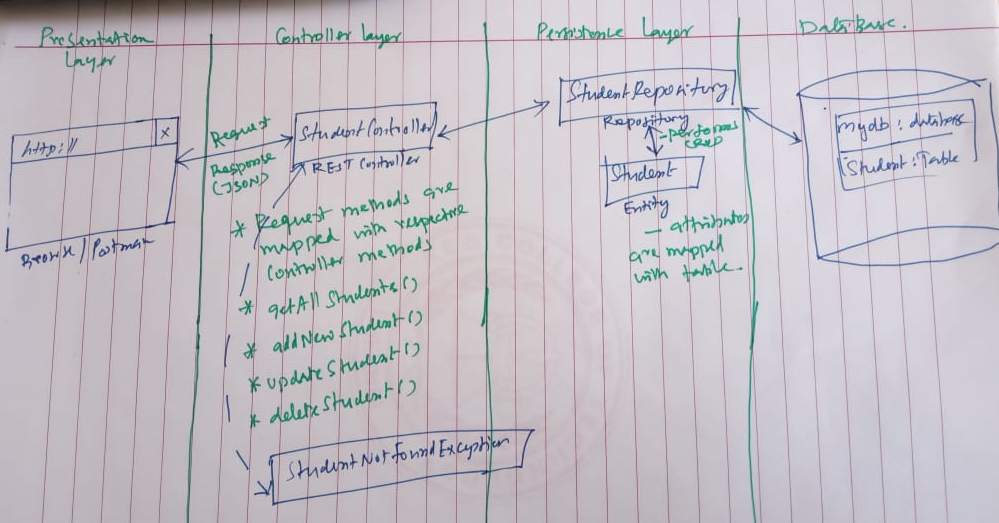 Presentation
Layer
Controller layer
Persistence Layer
Database.
http://
x
Browse / Postman
Request
Response
(JSON)
StudentController
REST Controller
* Request methods are
mapped with respective
Controller methods
* getAllStudents()
* addNewStudent()
* updateStudent()
* deleteStudent()
StudentNotFoundException
StudentRepository
Repository
- performs
CRUD
Student
Entity
- attributes
are mapped
with table.
mydb : database
Student : Table